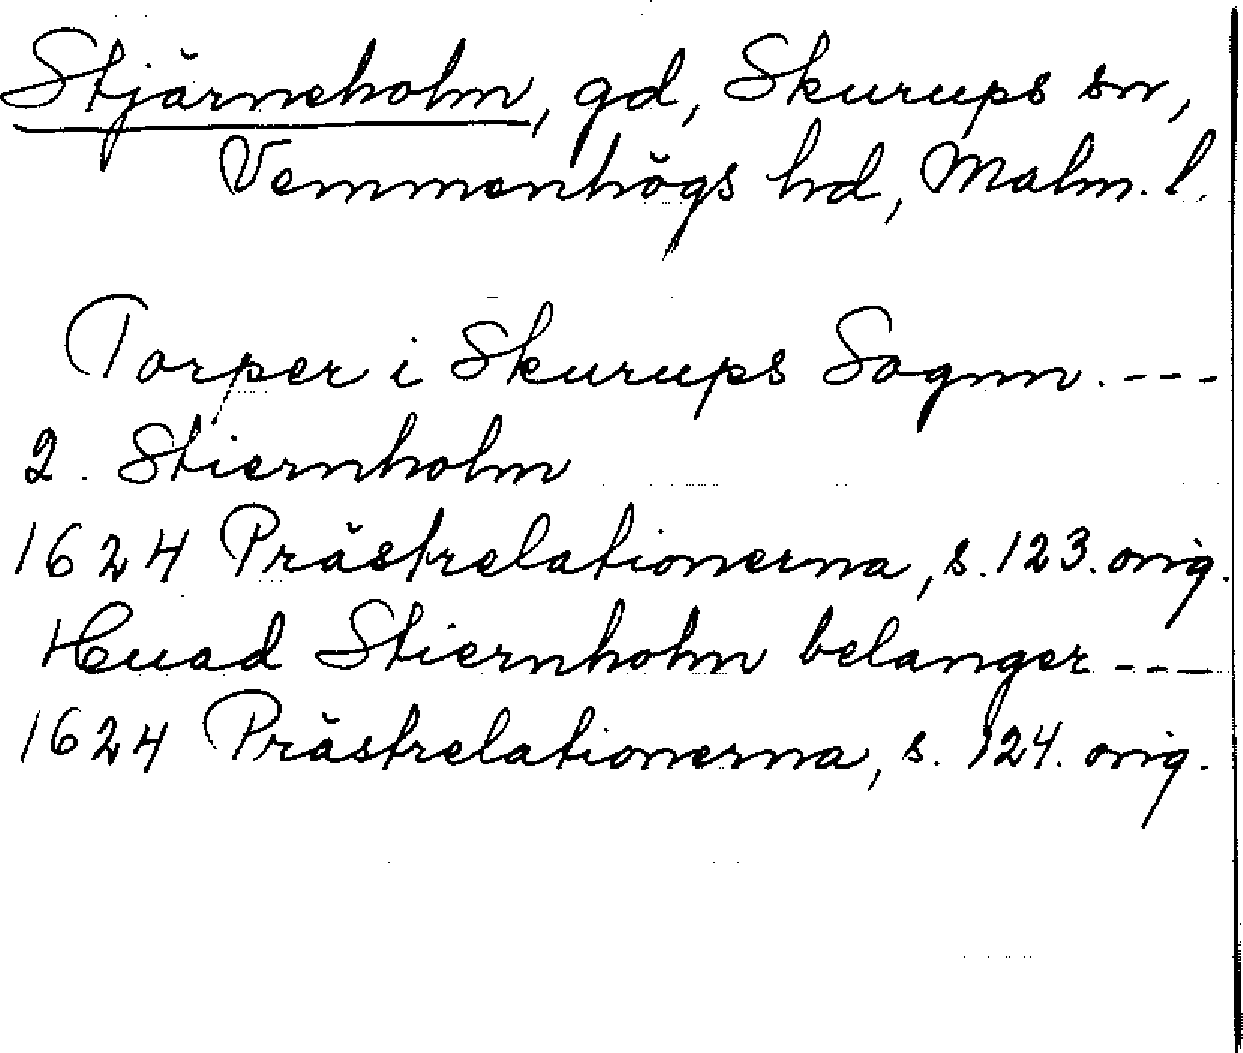 Stjärneholm, gd, Skurups sn,
Vemmenhögs hd, Malm. l.
Torper i Skurups Sognn. ---
2. Stiernholm
1624 Prästrelationerna, s. 123. orig.
Huad Stiernholm belanger ---
1624 Prästrelationerna, s. 124. orig.